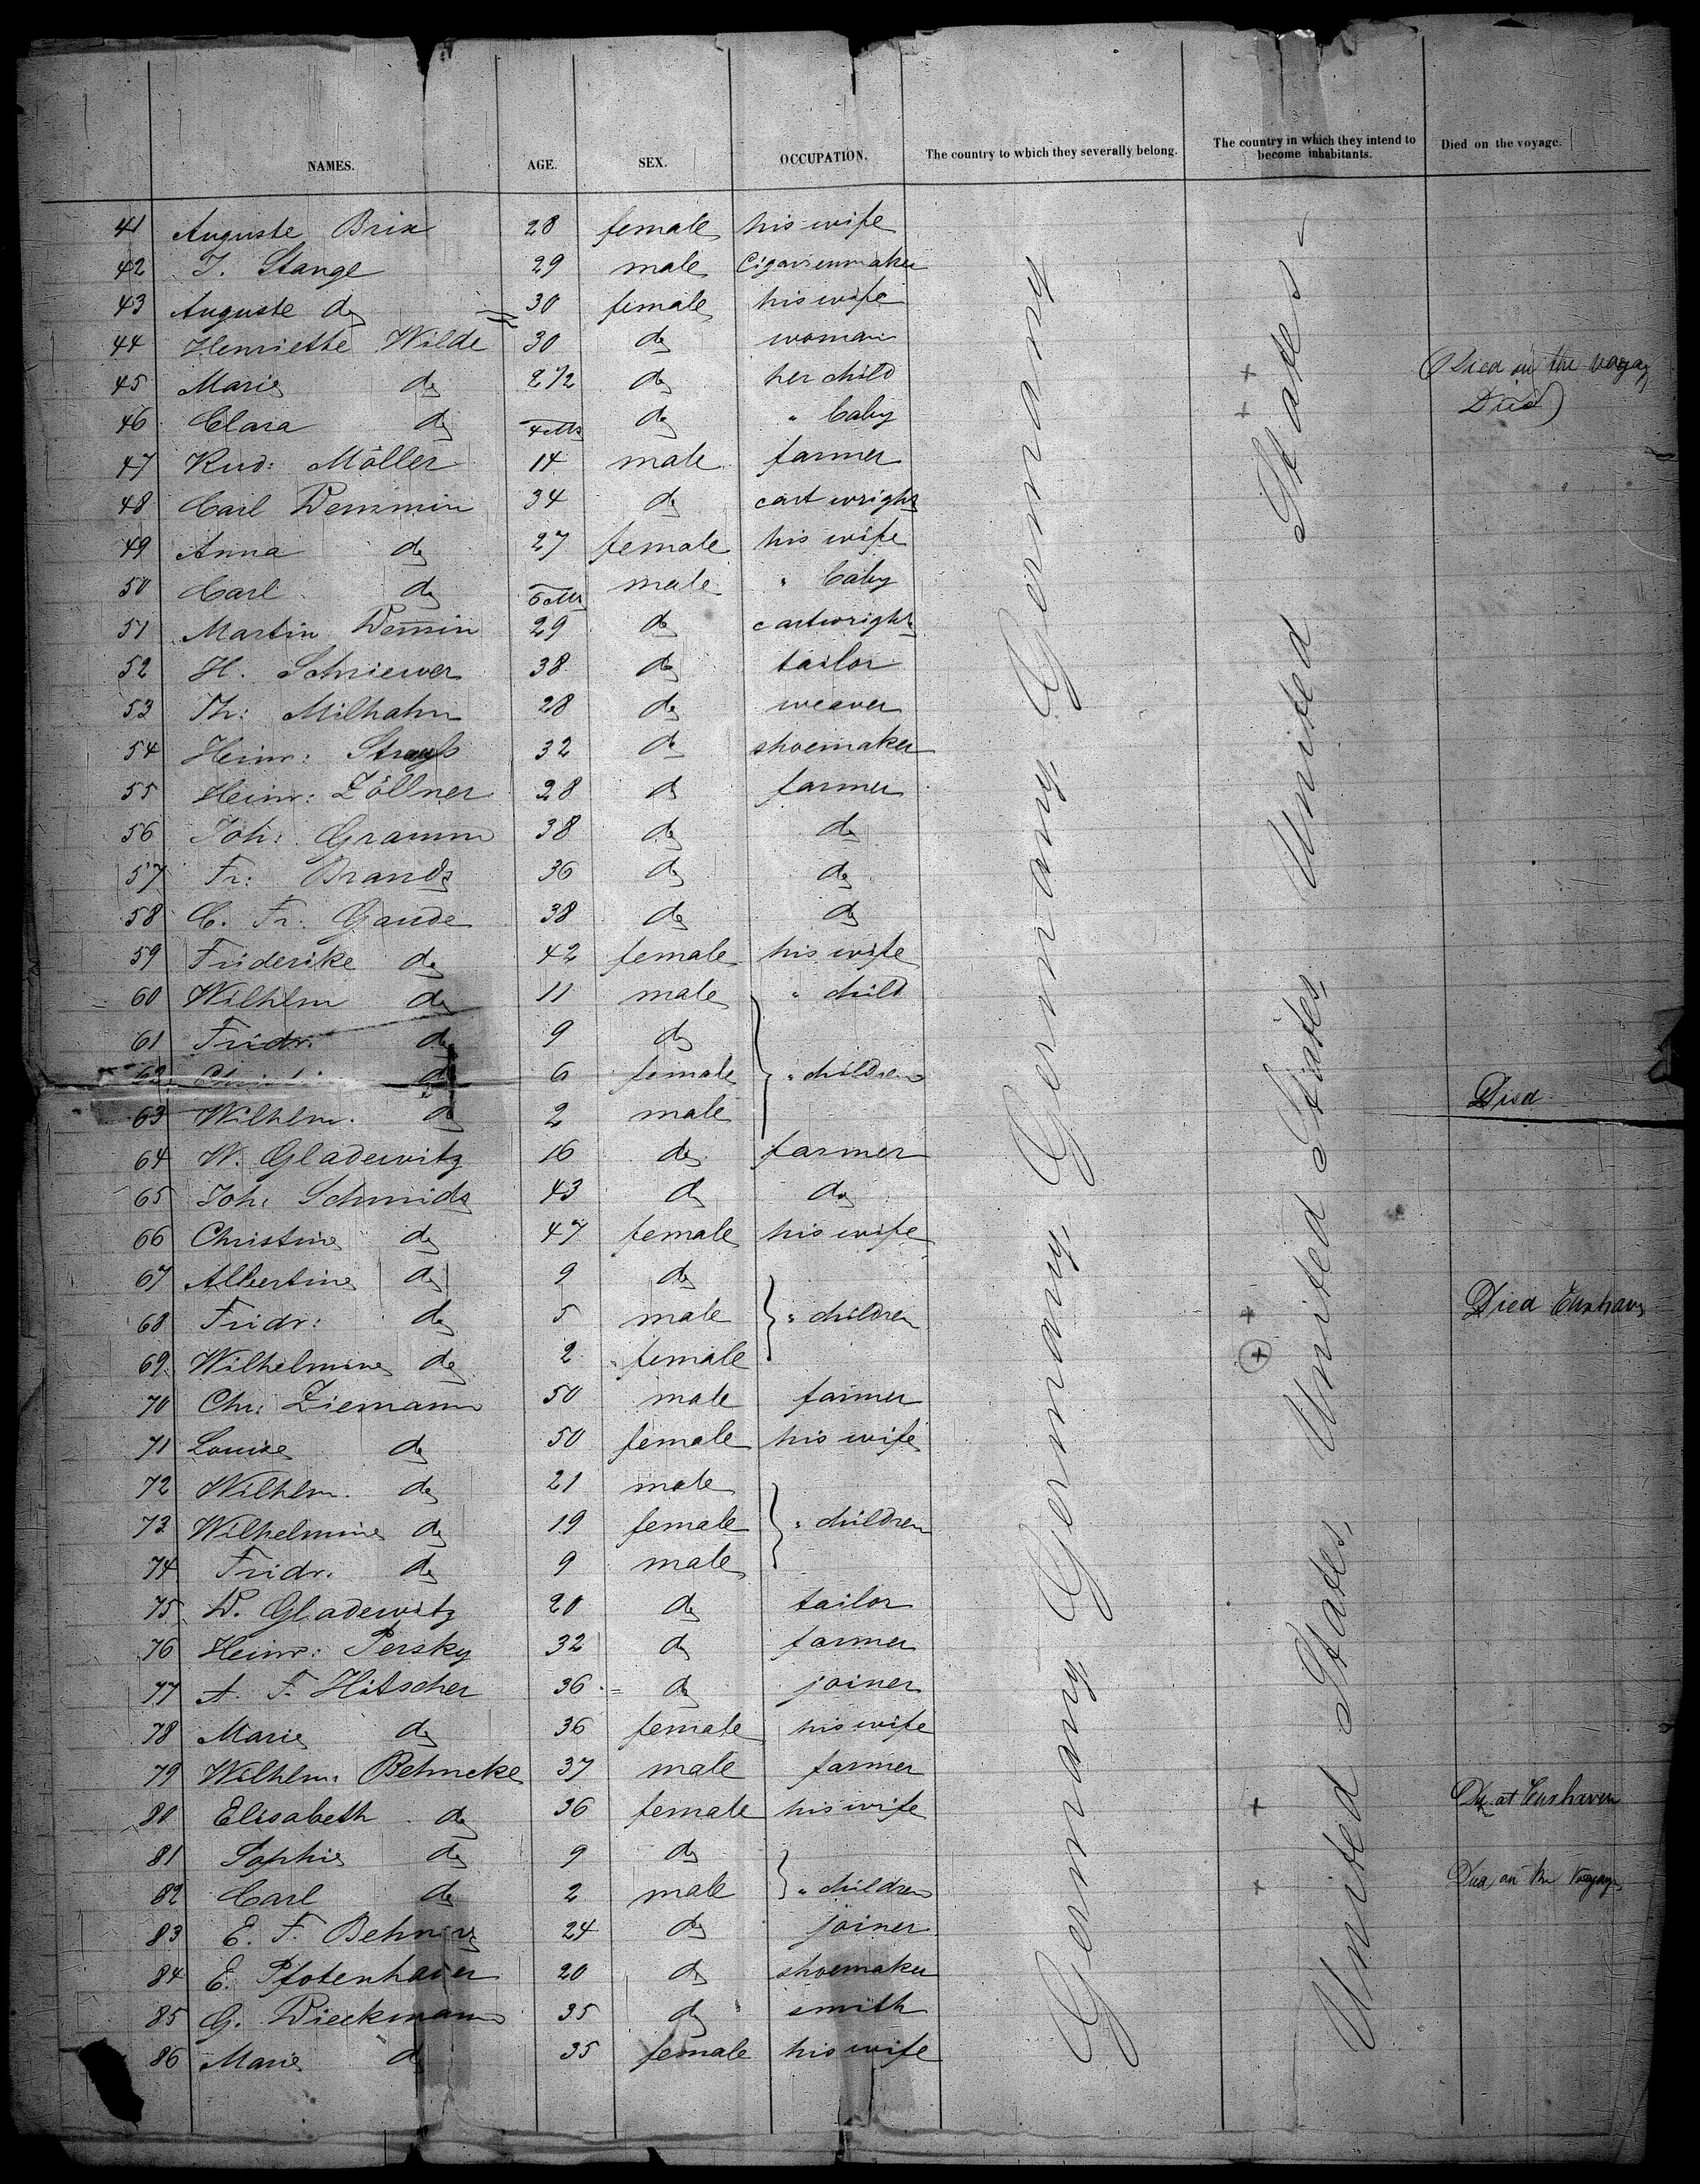 NAMES. AGE. SEX. OCCUPATION. The country to which they severally belong. The country in which they intend to become inhabitants. Died on the voyage.
41 Auguste Brix 28 female his wife
42 J. Stange 29 male Cigarrenmaker
43 Auguste do 30 female his wife
44 Henriette Wilde 30 do woman
45 Marie do 2 1/2 do her child + Died on the voyage
46 Clara do 4 Ms do " baby + Died
47 Rud: Möller 14 male farmer
48 Carl Demmin 34 do cart wright
49 Anna do 27 female his wife
50 Carl do 6 Ms male " baby
51 Martin Dem̄in 29 do cartwright
52 H. Schriewer 38 do tailor
53 Th: Milhahn 28 do weaver
54 Heinr: Strauß 32 do shoemaker
55 Heinr: Zöllner 28 do farmer
56 Joh: Gramm 38 do do
57 Fr: Brandt 36 do do
58 C. Fr. Gaude 38 do do
59 Friderike do 42 female his wife
60 Wilhlm do 11 male " child
61 Fridr. do 9 do
62 do 6 female " children
63 Wilhlm. do 2 male Died
64 W. Gladewitz 16 do farmer
65 Joh: Schmidt 43 do do
66 Christine do 47 female his wife
67 Albertine do 9 do
68 Fridr: do 5 male " children + Died Cuxhaven
69 Wilhelmine do 2 female +
70 Chr: Ziemann 50 male farmer
71 Louise do 50 female his wife
72 Wilhlm. do 21 male
73 Wilhelmine do 19 female " children
74 Fridr. do 9 male
75 W. Gladewitz 20 do tailor
76 Heinr: Persky 32 do farmer
77 A. F. Hitscher 36 do joiner
78 Marie do 36 female his wife
79 Wilhlm: Behncke 37 male farmer
80 Elisabeth do 36 female his wife + at Cuxhaven
81 Sophie do 9 do
82 Carl do 2 male " children + Died on the voyage
83 E. F. 24 do joiner
84 E. Pfotenhauer 20 do shoemaker
85 G. Dieckmann 35 do smith
86 Marie do 35 female his wife
Germany, Germany, Germany, Germany, Germany
United States, United States, United States